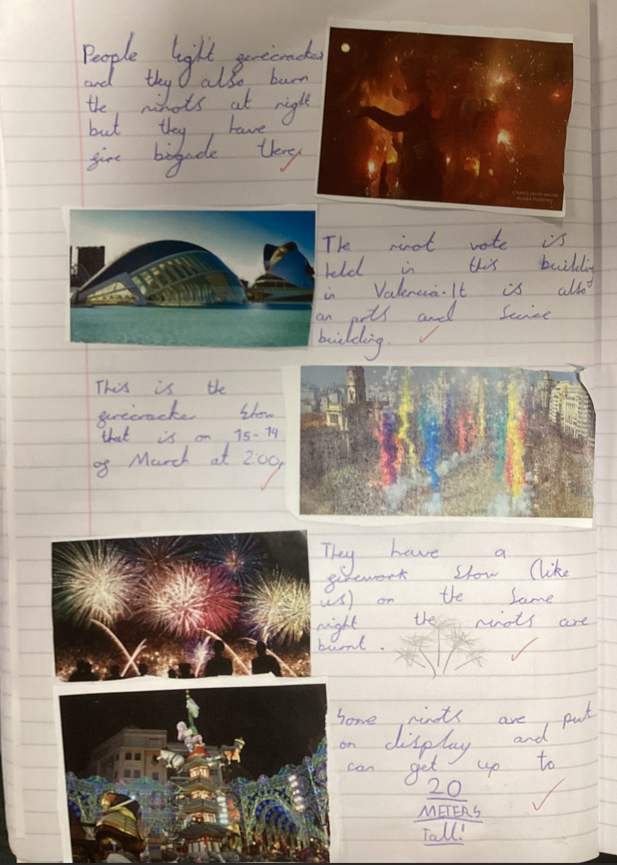 People light firecracker
and they also burn
the ninots at night
but they have
fire bigade there,
The ninot vote is
held in this building
in Valencia. It is also
an arts and Sience
building.
This is the
firecracke show
that is on 15-19
of March at 2:00,
They have a
firework show (like
us) on the same
night the ninots are
burnt.
Some ninots are put
on display and
can get up to
20
METERS
Tall!